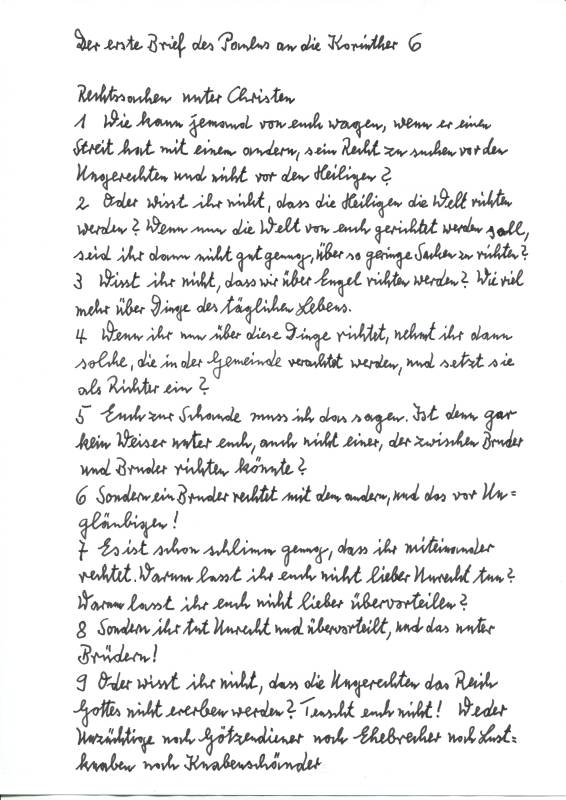 Der erste Brief des Paulus an die Korinther 6
Rechtssachen unter Christen
1 Wie kann jemand von euch wagen, wenn er einen
Streit hat mit einem andern, sein Recht zu suchen vor den
Ungerechten und nicht vor den Heiligen?
2 Oder wisst ihr nicht, dass die Heiligen die Welt richten
werden? Wenn nun die Welt von euch gerichtet werden soll,
seid ihr dann nicht gut genug, über so geringe Sachen zu richten?
3 Wisst ihr nicht, dass wir über Engel richten werden? Wie viel
mehr über Dinge des täglichen Lebens.
4 Wenn ihr nun über diese Dinge richtet, nehmt ihr dann
solche, die in der Gemeinde verachtet werden, und setzt sie
als Richter ein?
5 Euch zur Schande muss ich das sagen. Ist denn gar
kein Weiser unter euch, auch nicht einer, der zwischen Bruder
und Bruder richten könnte?
6 Sondern ein Bruder rechtet mit dem andern, und das vor Un=
gläubigen!
7 Es ist schon schlimm genug, dass ihr miteinander
rechtet. Warum lasst ihr euch nicht lieber Unrecht tun?
Warum lasst ihr euch nicht lieber übervorteilen?
8 Sondern ihr tut Unrecht und übervorteilt, und das unter
Brüdern!
9 Oder wisst ihr nicht, dass die Ungerechten das Reich
Gottes nicht ererben werden? Teuscht euch nicht! Weder
Unzüchtige noch Götzendiener noch Ehebrecher noch Lust=
knaben noch Knabenschänder